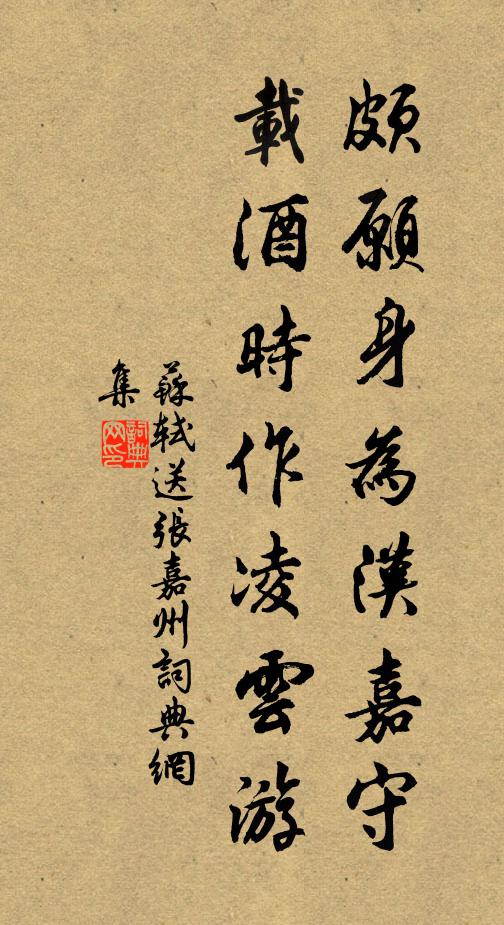 頗願身為漢嘉守
載酒時作凌雲游
蘇軾送張嘉州詞典網
集
詞典
网印